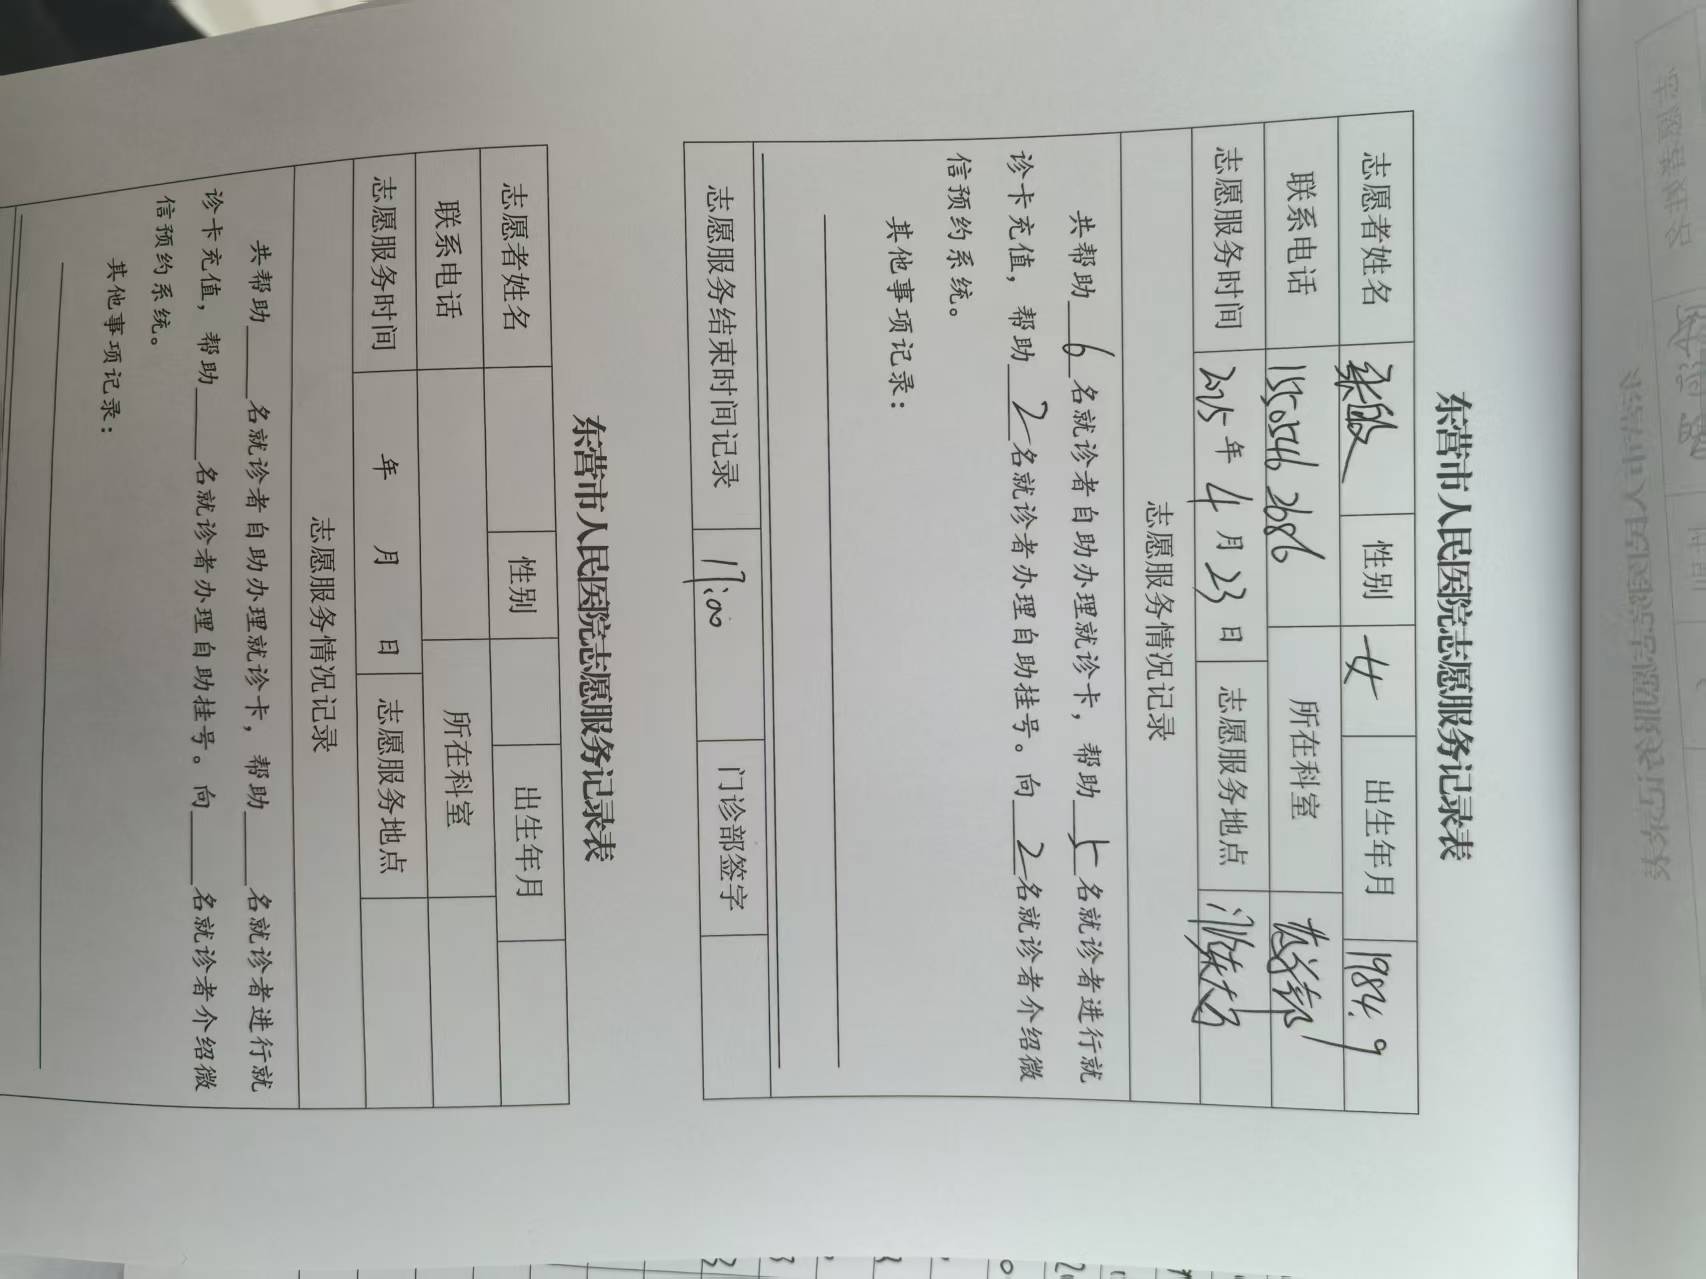 东营市人民医院志愿服务记录表
志愿者姓名 性别 女 出生年月 1984.9
联系电话 1505462686 所在科室
志愿服务时间 2025年4月23日 志愿服务地点 门诊大厅
志愿服务情况记录
共帮助6名就诊者自助办理就诊卡，帮助5名就诊者进行就
诊卡充值，帮助2名就诊者办理自助挂号。向2名就诊者介绍微
信预约系统。
其他事项记录：
志愿服务结束时间记录 17:00 门诊部签字
东营市人民医院志愿服务记录表
志愿者姓名 性别 出生年月
联系电话 所在科室
志愿服务时间 年 月 日 志愿服务地点
志愿服务情况记录
共帮助 名就诊者自助办理就诊卡，帮助 名就诊者进行就
诊卡充值，帮助 名就诊者办理自助挂号。向 名就诊者介绍微
信预约系统。
其他事项记录：